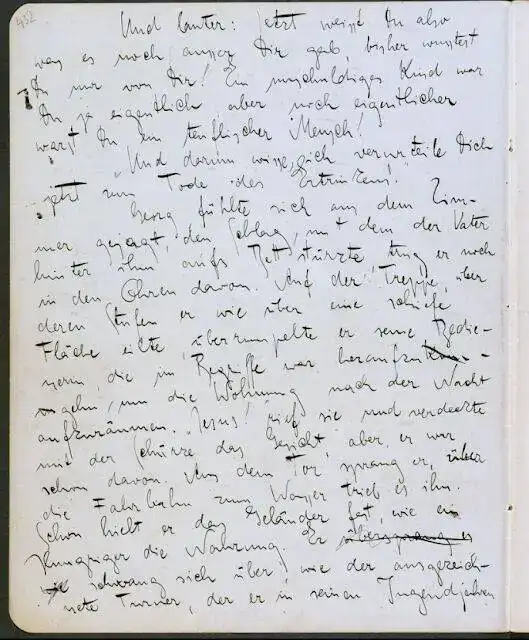 432
Und lauter: „Jetzt weisst Du also
was es noch ausser Dir gab, bisher wusstest
Du nur von Dir! Ein unschuldiges Kind war
Du ja eigentlich aber noch eigentlicher
warst Du ein teuflischer Mensch!
Und darum wisse, ich verurteile Dich
jetzt zum Tode des Ertrinkens!
Georg fühlte sich aus dem Zim-
mer gejagt, den Schlag, mit dem der Vater
hinter ihm aufs Bett stürzte trug er noch
in den Ohren davon. Auf der Treppe, über
deren Stufen er wie über eine schiefe
Fläche eilte, überrumpelte er seine Bedie-
nerin, die im Begriffe war heraufzu
gehn, um die Wohnung nach der Nacht
aufzuräumen. „Jesus!" rief sie und verdeckte
mit der Schürze das Gesicht, aber er war
schon davon. Aus dem Tor sprang er, über
die Fahrbahn zum Wasser trieb es ihn.
Schon hielt er das Geländer fest, wie ein
Hungriger die Nahrung. Er übersprang es
schwang sich über, wie der ausgezeich-
nete Turner, der er in seinen Jugendjahren